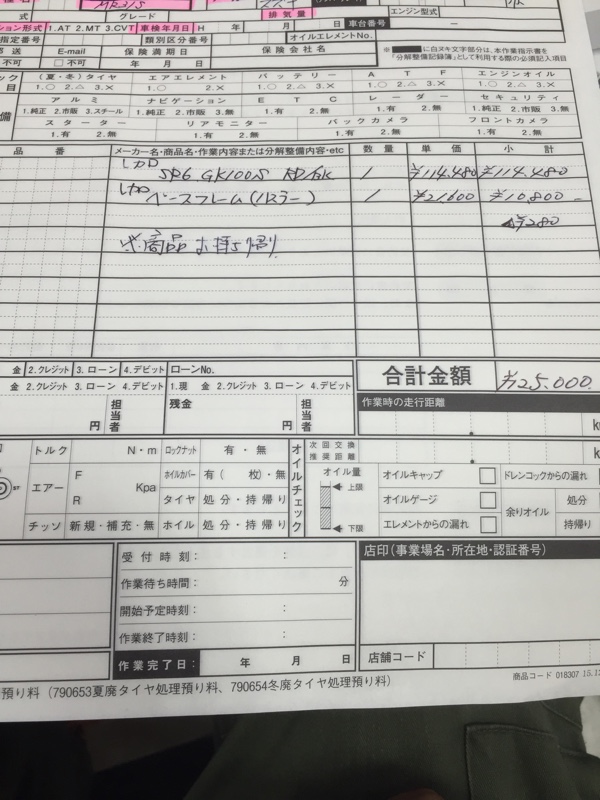 MR31S
スズキ
式 グレード 排気量 エンジン型式
ション形式 1.AT 2.MT 3.CVT 車検年月日 H 年 月 日 車台番号 ー
指定番号 類別区分番号 オイルエレメントNo.
再送 E-mail 保険満期日 保険会社名
□不可 □不可 年 月 日
に白ヌキ文字部分は、本作業指示書を
「分解整備記録簿」として利用する際の必須記入項目
(夏・冬)タイヤ エアエレメント バッテリー ATF エンジンオイル
1.○ 2.△ 3.× 1.○ 2.× 1.○ 2.△ 3.× 1.○ 2.△ 3.× 1.○ 2.△ 3.×
アルミ ナビゲーション ETC レーダー セキュリティ
1.純正 2.市販 3.スチール 1.純正 2.市販 3.無 1.有 2.無 1.有 2.無 1.純正 2.市販 3.無
スターター リアモニター バックカメラ フロントカメラ
1.有 2.無 1.有 2.無 1.有 2.無 1.有 2.無
品番 メーカー名・商品名・作業内容または分解整備内容・etc 数量 単価 小計
レカロ
SR6 GK100S RD/BK 1 ¥114.480 ¥114.480
レカロ
ベースフレーム(ハスラー) 1 ¥21600 ¥10,800
280
※商品お持ち帰り
金 2.クレジット 3.ローン 4.デビット ローンNo. 合計金額 ¥125.000.
金 2.クレジット 3.ローン 4.デビット 担当者 1.現金 2.クレジット 3.ローン 4.デビット 担当者 作業時の走行距離
円 残金 円
トルク N・m ロックナット 有・無 オイルチェック 次回交換推奨距離
エアー F R Kpa ホイルカバー 有( 枚)・無 オイル量 上限 下限 オイルキャップ □ ドレンコックからの漏れ
タイヤ 処分・持帰り オイルゲージ □ 余りオイル 処分
チッソ 新規・補充・無 ホイル 処分・持帰り エレメントからの漏れ □ 持帰り
受付時刻: : 店印(事業場名・所在地・認証番号)
作業待ち時間: 分
開始予定時刻: :
作業終了時刻: :
作業完了日: 年 月 日 店舗コード
預り料(790653夏廃タイヤ処理預り料、790654冬廃タイヤ処理預り料)
商品コード 018307